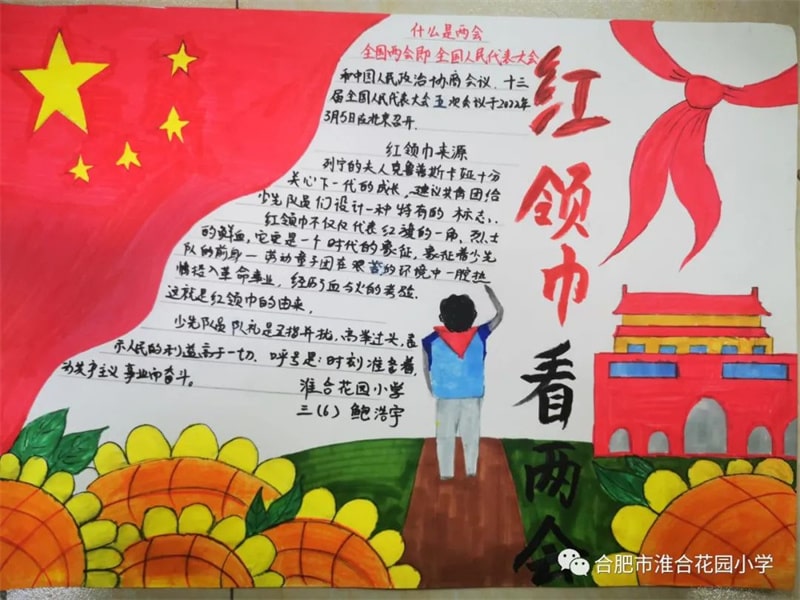 什么是两会
全国两会即 全国人民代表大会
和中国人民政治协商会议、十三
届全国人民代表大会五次会议于2022年
3月5日在北京召开.
红领巾来源
列宁的夫人克鲁普斯卡娅十分
关心下一代的成长，建议共青团给
少先队员们设计一种特有的标志.
红领巾不仅仅代表红旗的一角，烈士
的鲜血，它更是一个时代的象征，象征着少先
队的前身一劳动童子团在艰苦的环境中一腔热
情投入革命事业，经历了血与火的考验.
这就是红领巾的由来.
少先队员队礼是五指并拢，高举过头，表
示人民的利益高于一切. 呼号是:时刻准备着,
动共产主义事业而奋斗。
淮合花园小学
三(6) 鲍浩宇
红领巾看两会
合肥市淮合花园小学